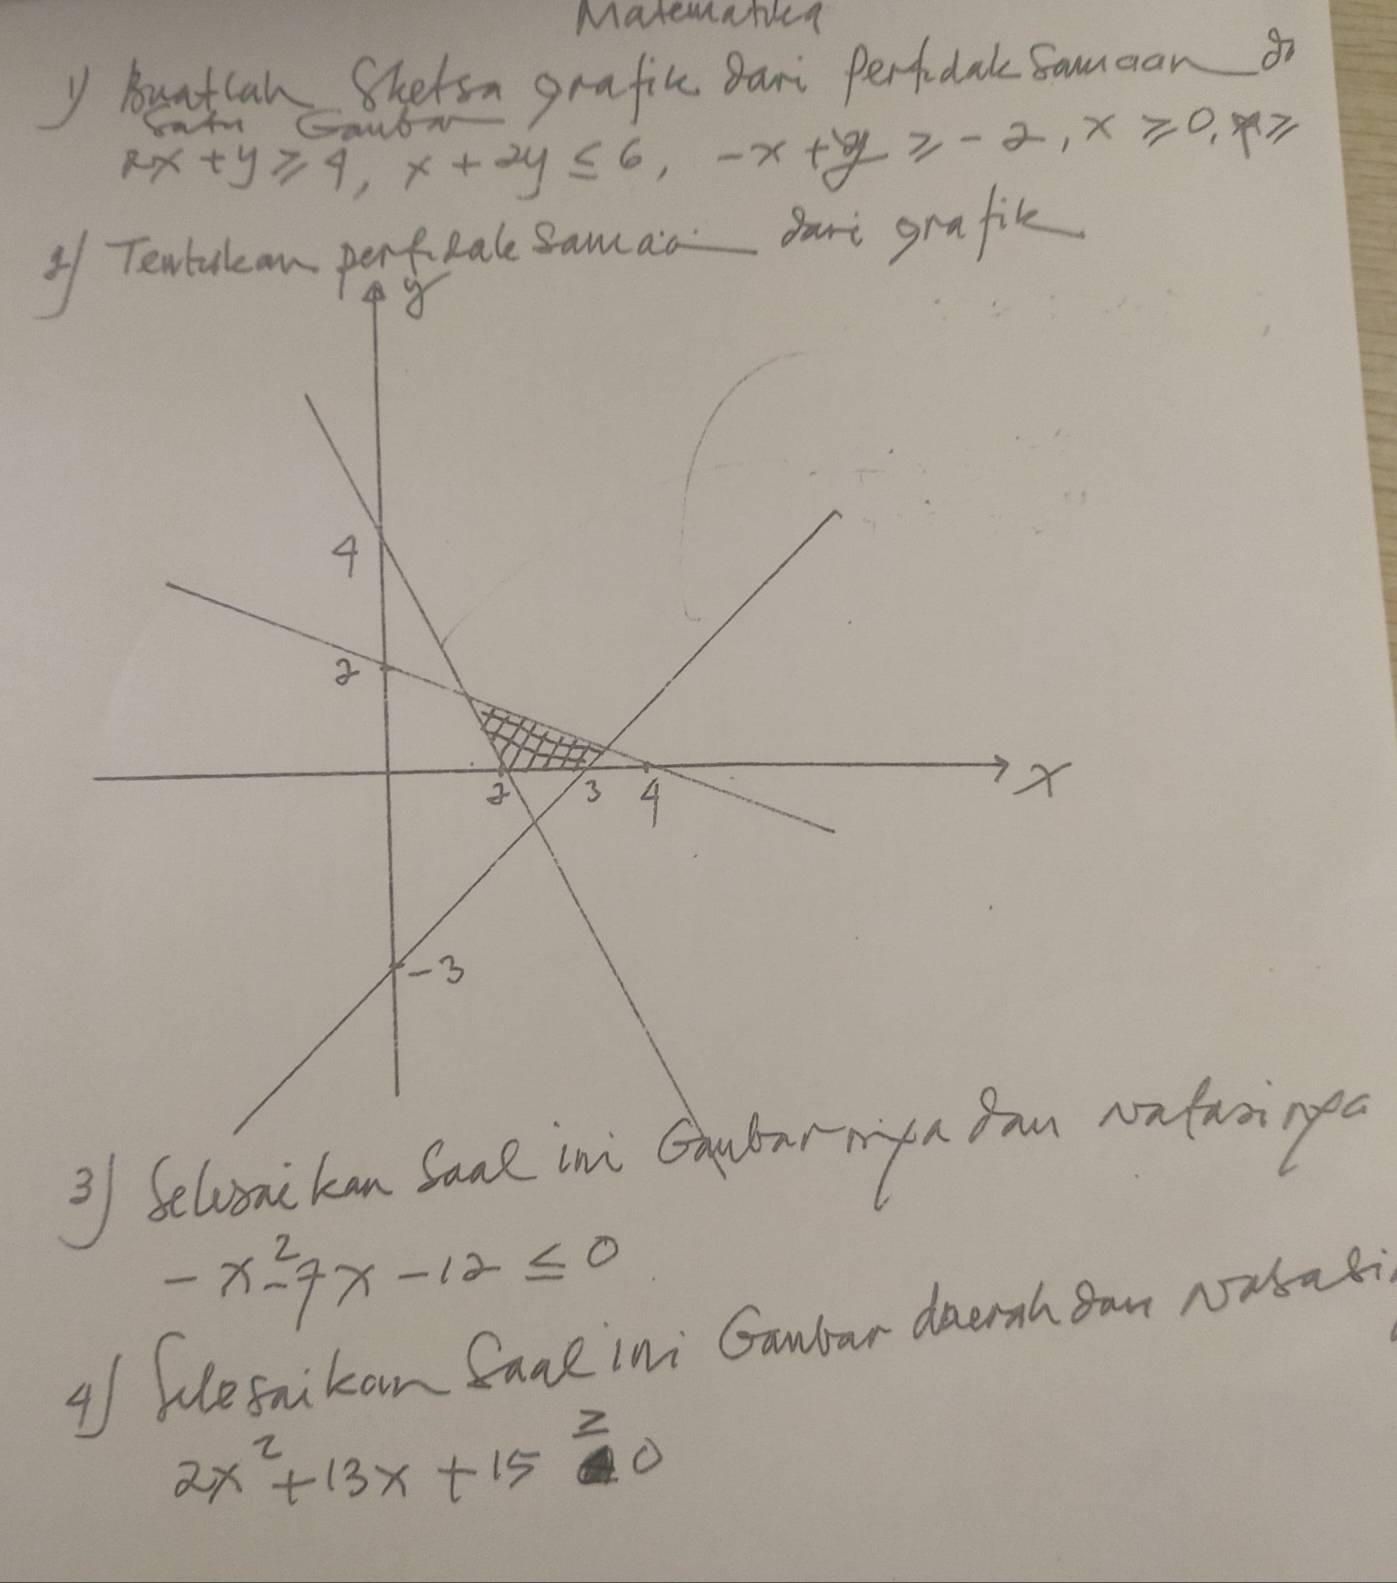 Matematika
1) Buatlah Sketsa grafik dari Pertidak Samaan di
Satu Gambar
2x + y ≥ 4, x + 2y ≤ 6, -x + y ≥ -2, x ≥ 0, y ≥
2) Tentukan pertidak Samaan dari grafik
y
4
2
2 3 4 x
-3
3) Selesaikan Soal ini Gambarnya dan Notasinya
- x² - 7x - 12 ≤ 0
4) Selesaikan Soal ini Gambar daerah dan Notasi
2x² + 13x + 15 ≥ 0